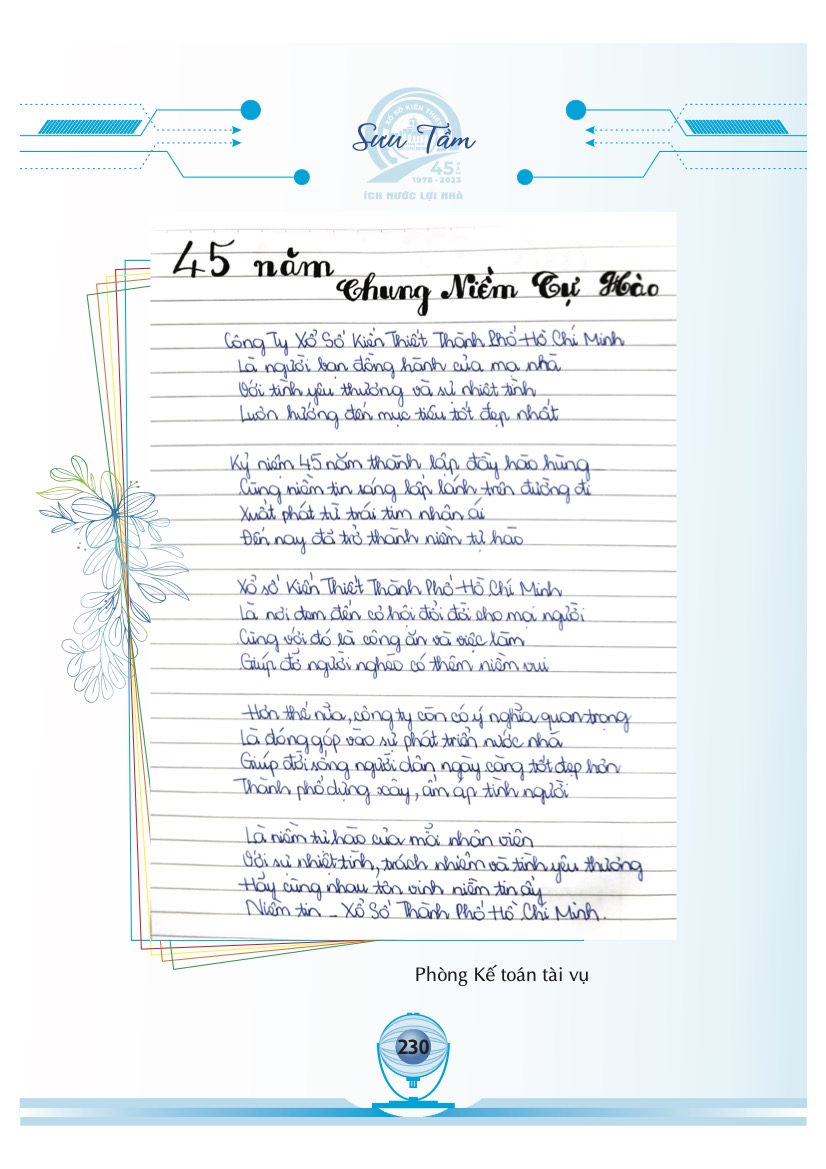 XỔ SỐ KIẾN THIẾT
Sưu Tầm
45 NĂM
1978 - 2023
ÍCH NƯỚC LỢI NHÀ
45 năm
Chung Niềm Tự Hào
Công Ty Xổ Số Kiến Thiết Thành Phố Hồ Chí Minh
Là người bạn đồng hành của mọi nhà
Với tình yêu thương và sự nhiệt tình
Luôn hướng đến mục tiêu tốt đẹp nhất
Kỷ niệm 45 năm thành lập đầy hào hùng
Cùng niềm tin sáng lấp lánh trên đường đi
Xuất phát từ trái tim nhân ái
Đến nay đã trở thành niềm tự hào
Xổ số Kiến Thiết Thành Phố Hồ Chí Minh
Là nơi đem đến cơ hội đổi đời cho mọi người
Cùng với đó là công ăn và việc làm
Giúp đỡ người nghèo có thêm niềm vui
Hơn thế nữa, công ty còn có ý nghĩa quan trọng
Là đóng góp vào sự phát triển nước nhà
Giúp đời sống người dân ngày càng tốt đẹp hơn
Thành phố dựng xây, ấm áp tình người
Là niềm tự hào của mỗi nhân viên
Với sự nhiệt tình, trách nhiệm và tình yêu thương
Hãy cùng nhau tôn vinh niềm tin ấy
Niềm tin - Xổ Số Thành Phố Hồ Chí Minh.
Phòng Kế toán tài vụ
230